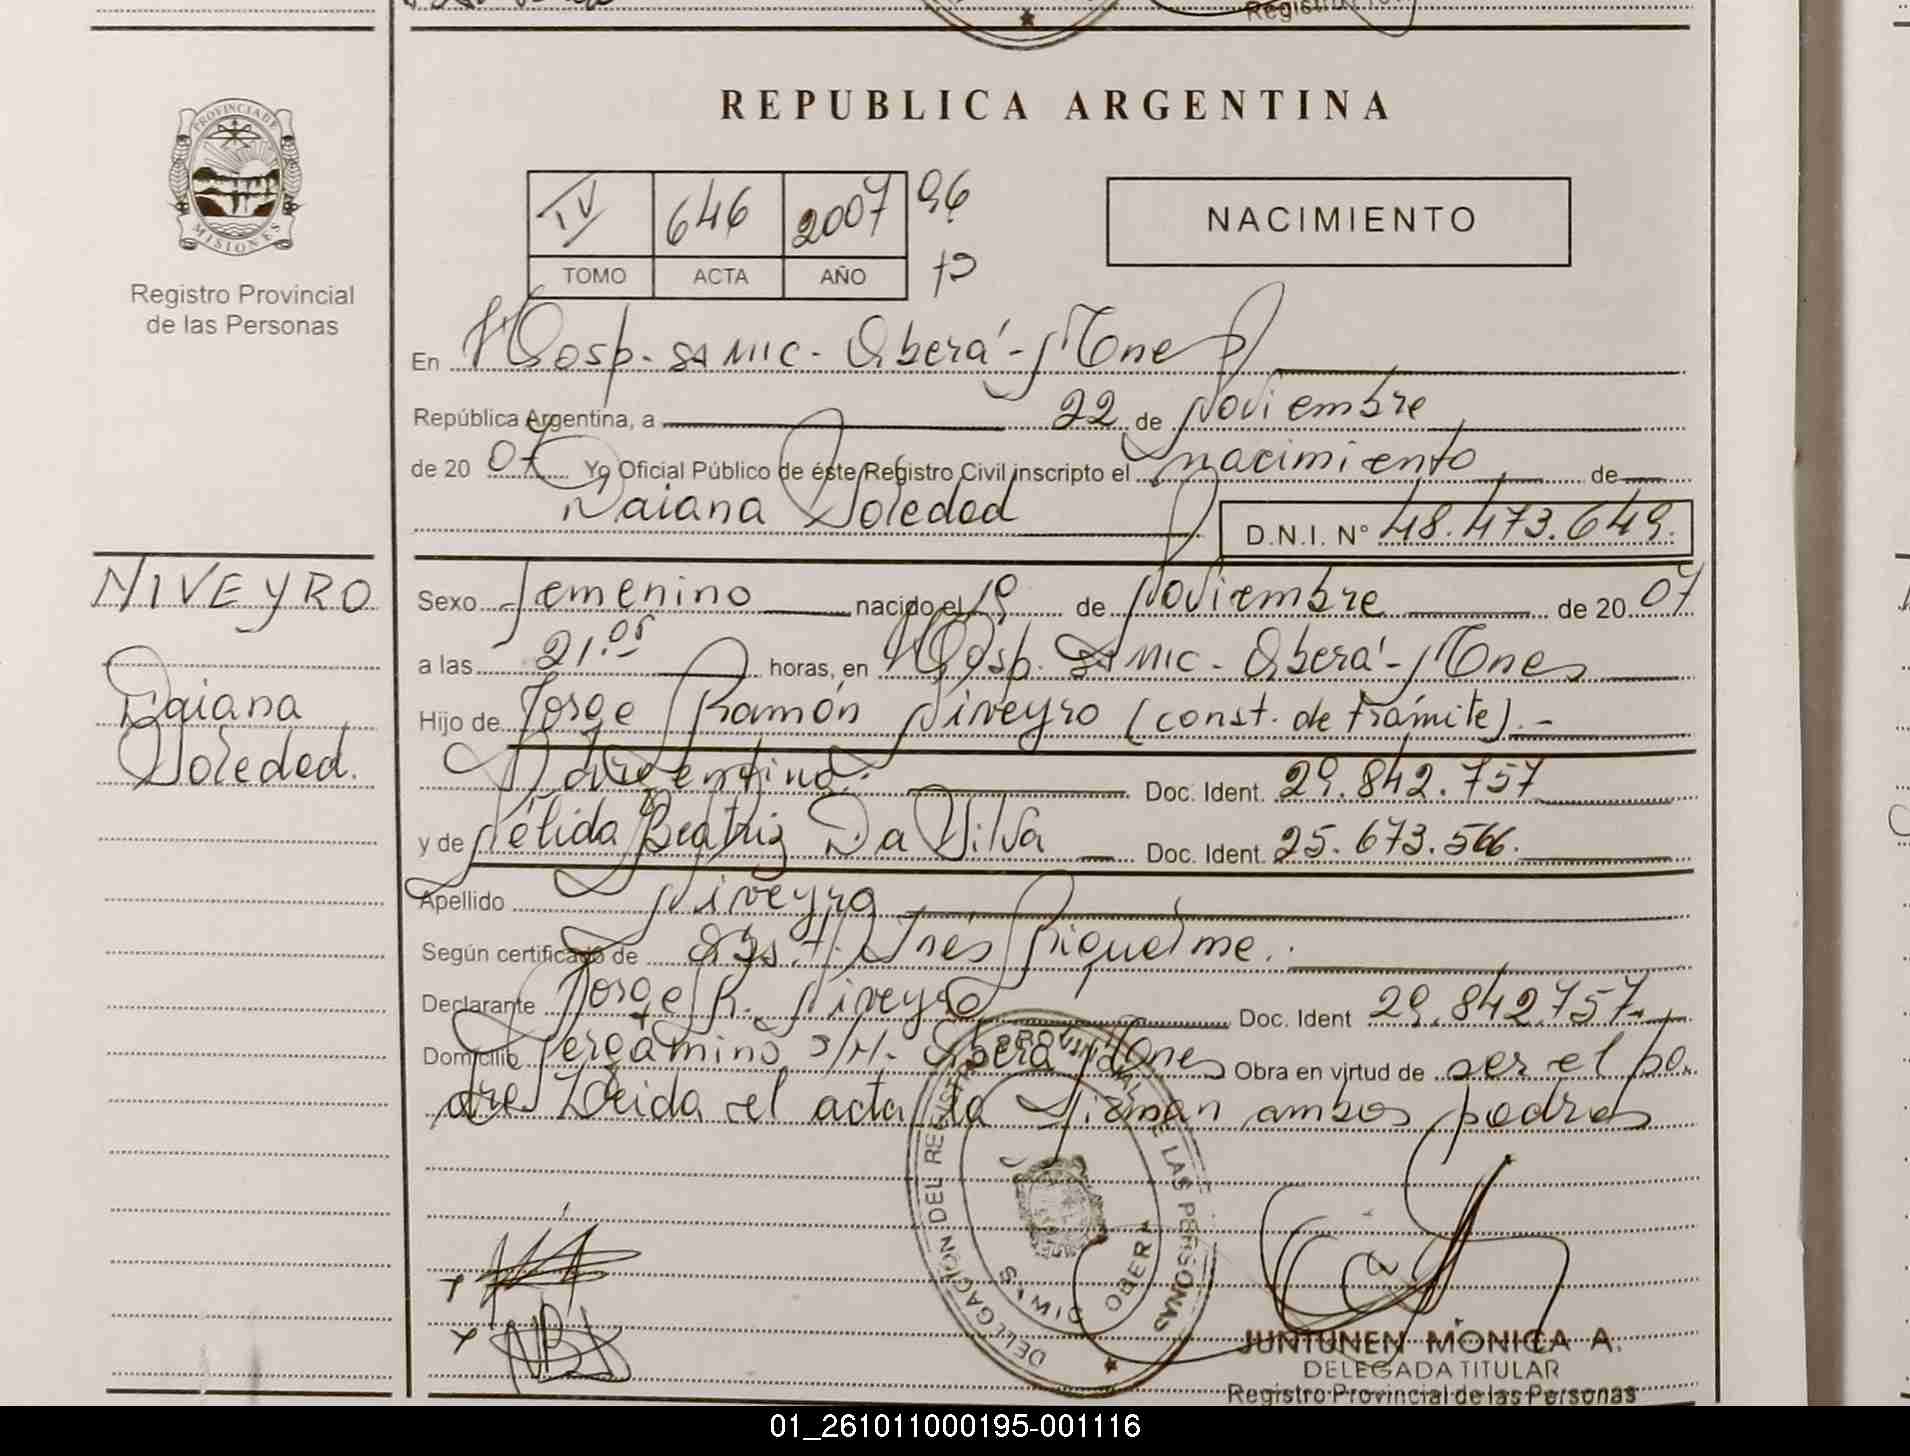 REPUBLICA ARGENTINA
PROVINCIA DE
MISIONES
Registro Provincial
de las Personas
IV 646 2007 96
TOMO ACTA AÑO
NACIMIENTO
En Hosp. SAMIC - Oberá - Mnes
República Argentina, a 22 de Noviembre
de 20 07 Yo Oficial Público de éste Registro Civil inscripto el nacimiento de
Daiana Soledad D.N.I. Nº 48.473.649.
NIVEYRO
Daiana
Soledad.
Sexo femenino nacido el 19 de Noviembre de 20 07
a las 21:05 horas, en Hosp. SAMIC - Oberá - Mnes
Hijo de Jorge Ramón Niveyro (const. de trámite). -
Argentina. Doc. Ident. 29.842.757
y de Nélida Beatriz Da Silva Doc. Ident. 25.673.566.
Apellido Niveyro
Según certificado de Obst. Inés Riquelme.
Declarante Jorge R. Niveyro Doc. Ident 29.842.757
Domicilio Pergamino S/N. Oberá Mnes Obra en virtud de ser el pa-
dre Leida el acta la firman ambos padres
DELEGACION DEL REGISTRO PROVINCIAL DE LAS PERSONAS
OBERA
JUNTUNEN MONICA A.
DELEGADA TITULAR
Registro Provincial de las Personas
01_261011000195-001116